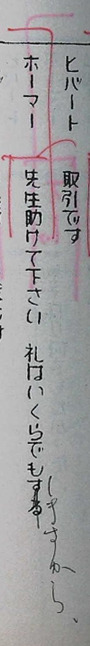 ヒバート　取引です
ホーマー　先生助けて下さい　礼はいくらでもする
しますから、